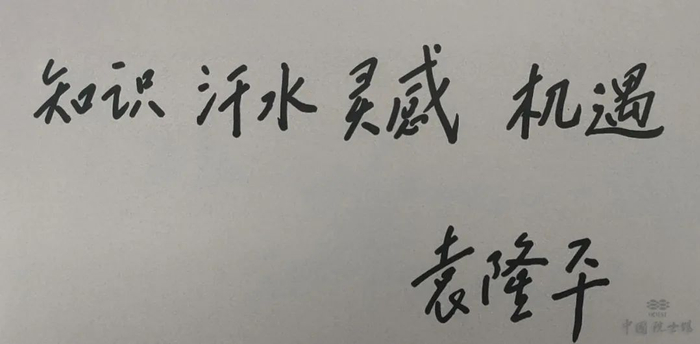 知识 汗水 灵感 机遇
袁隆平